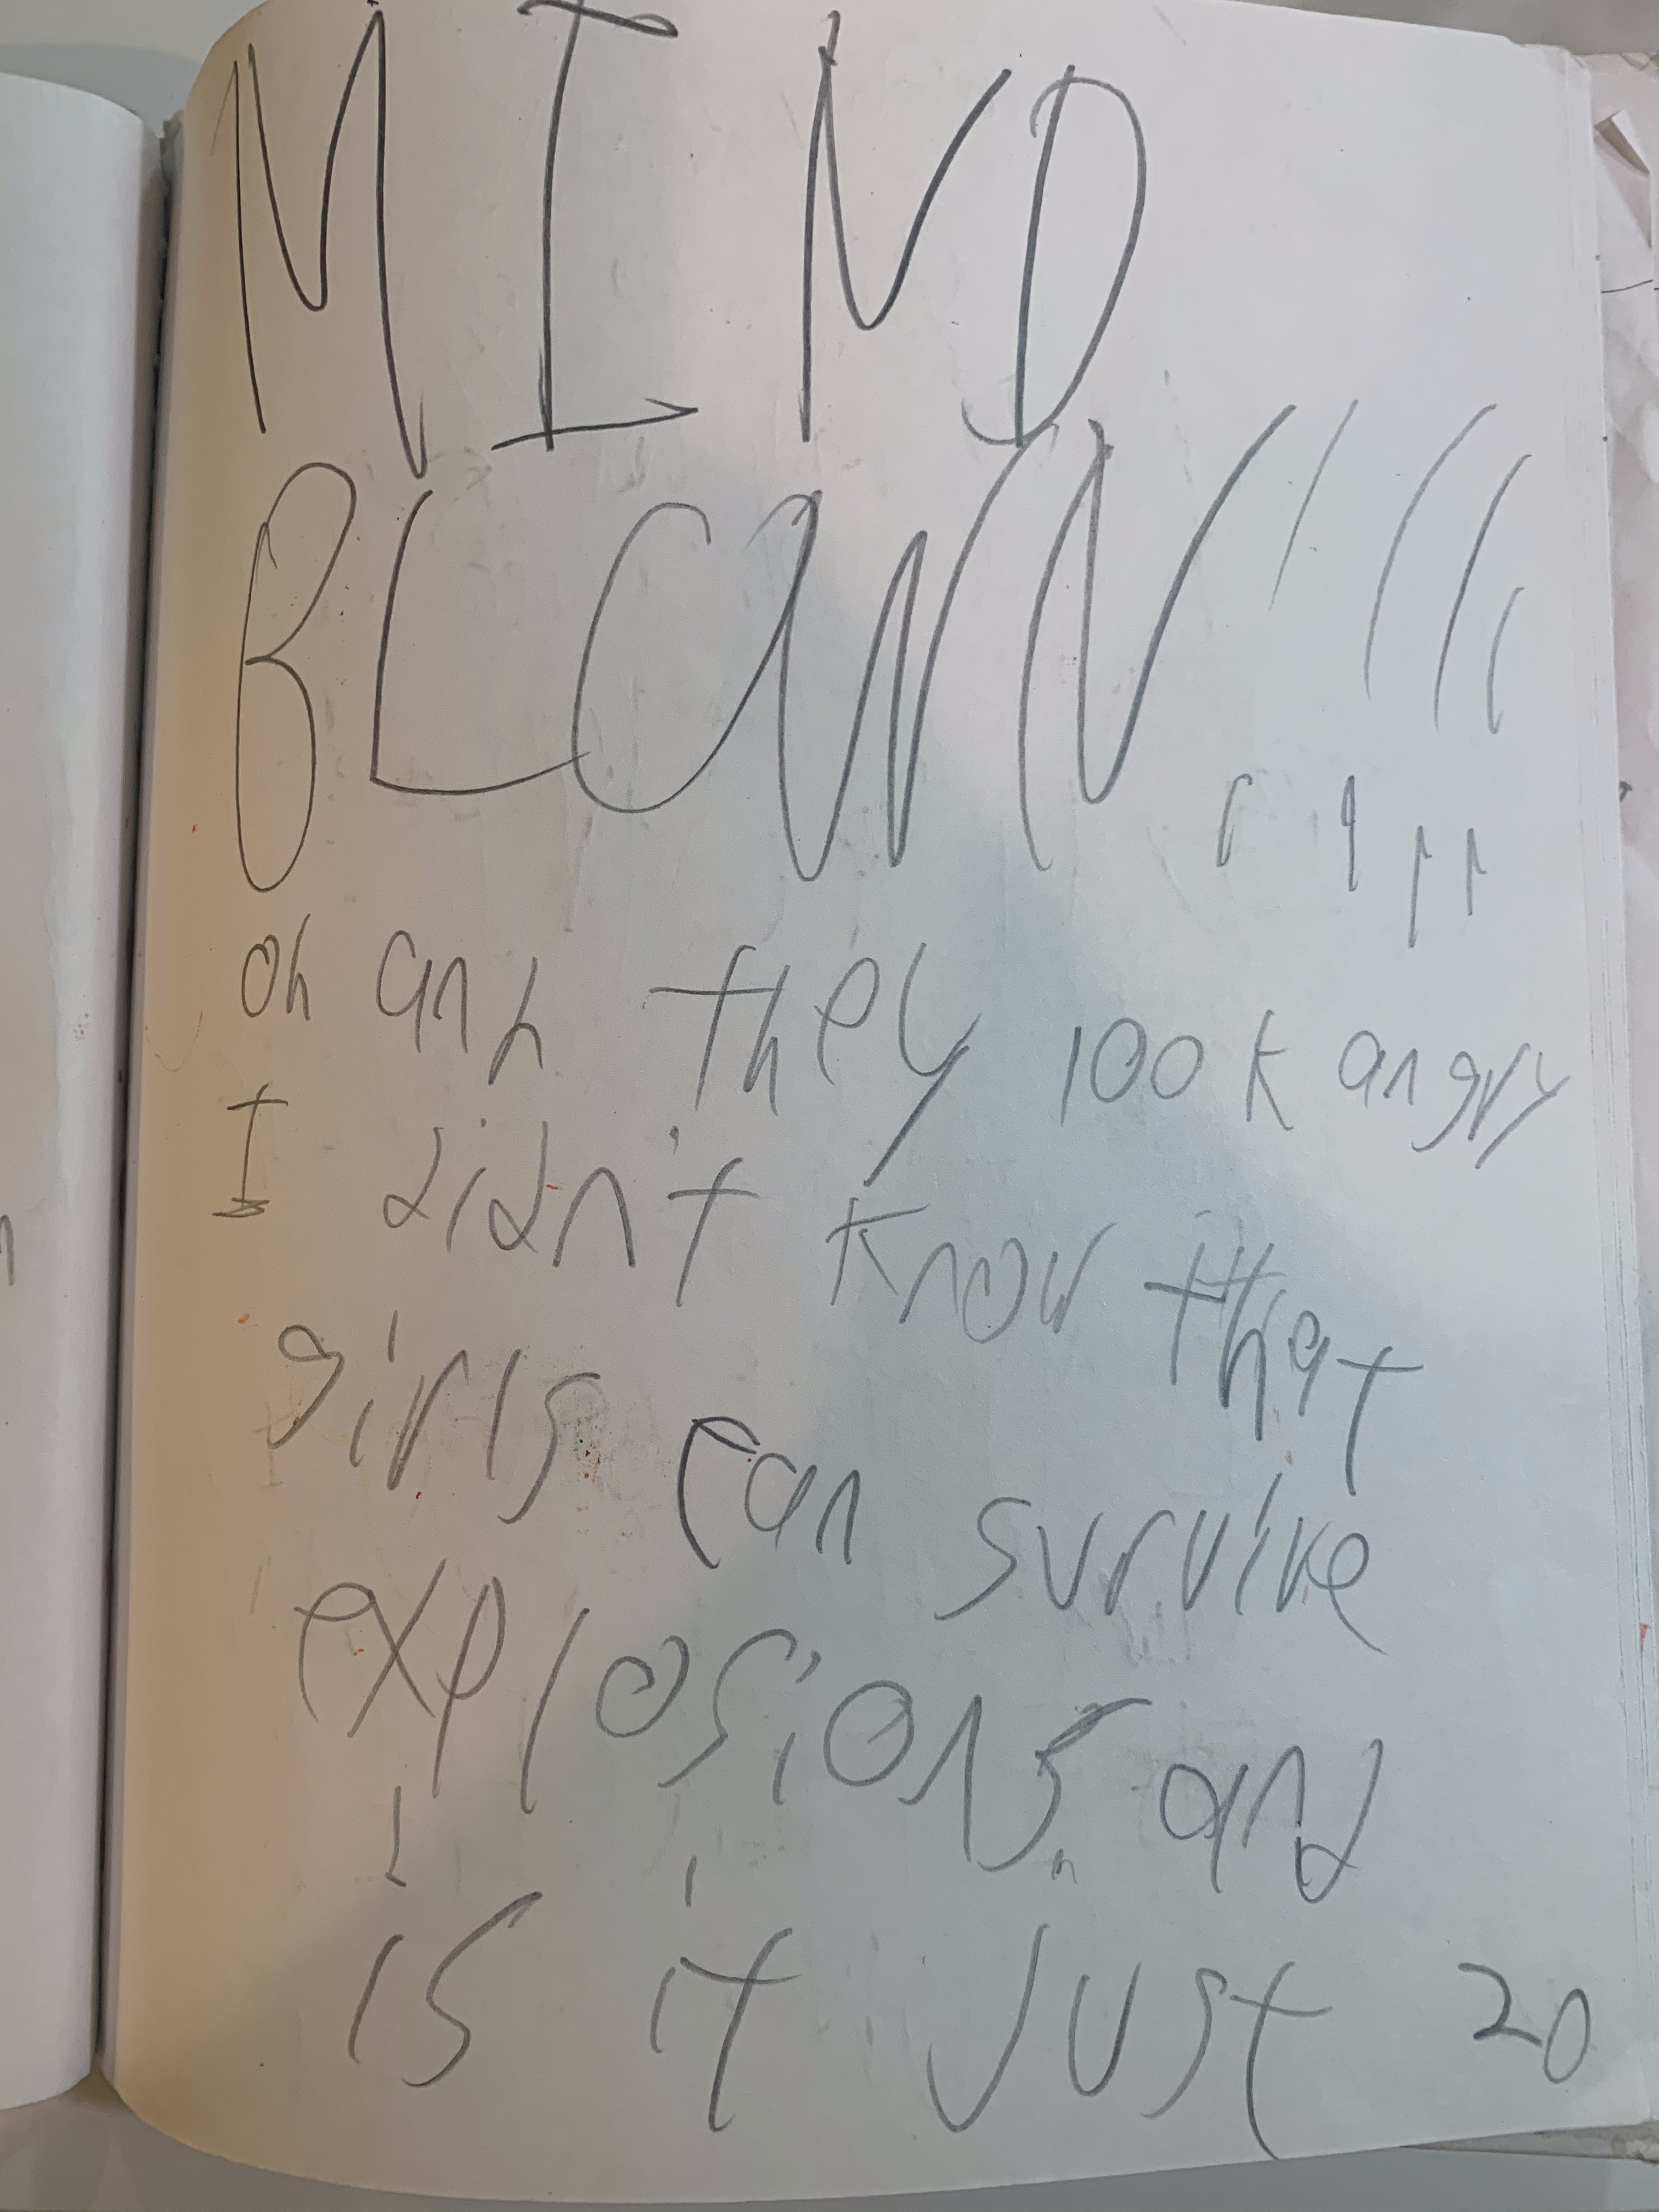 MIND
BLOWN!!!!
oh anh they look angry
I didn't know that
girls can survive
explosions and
is it just 20